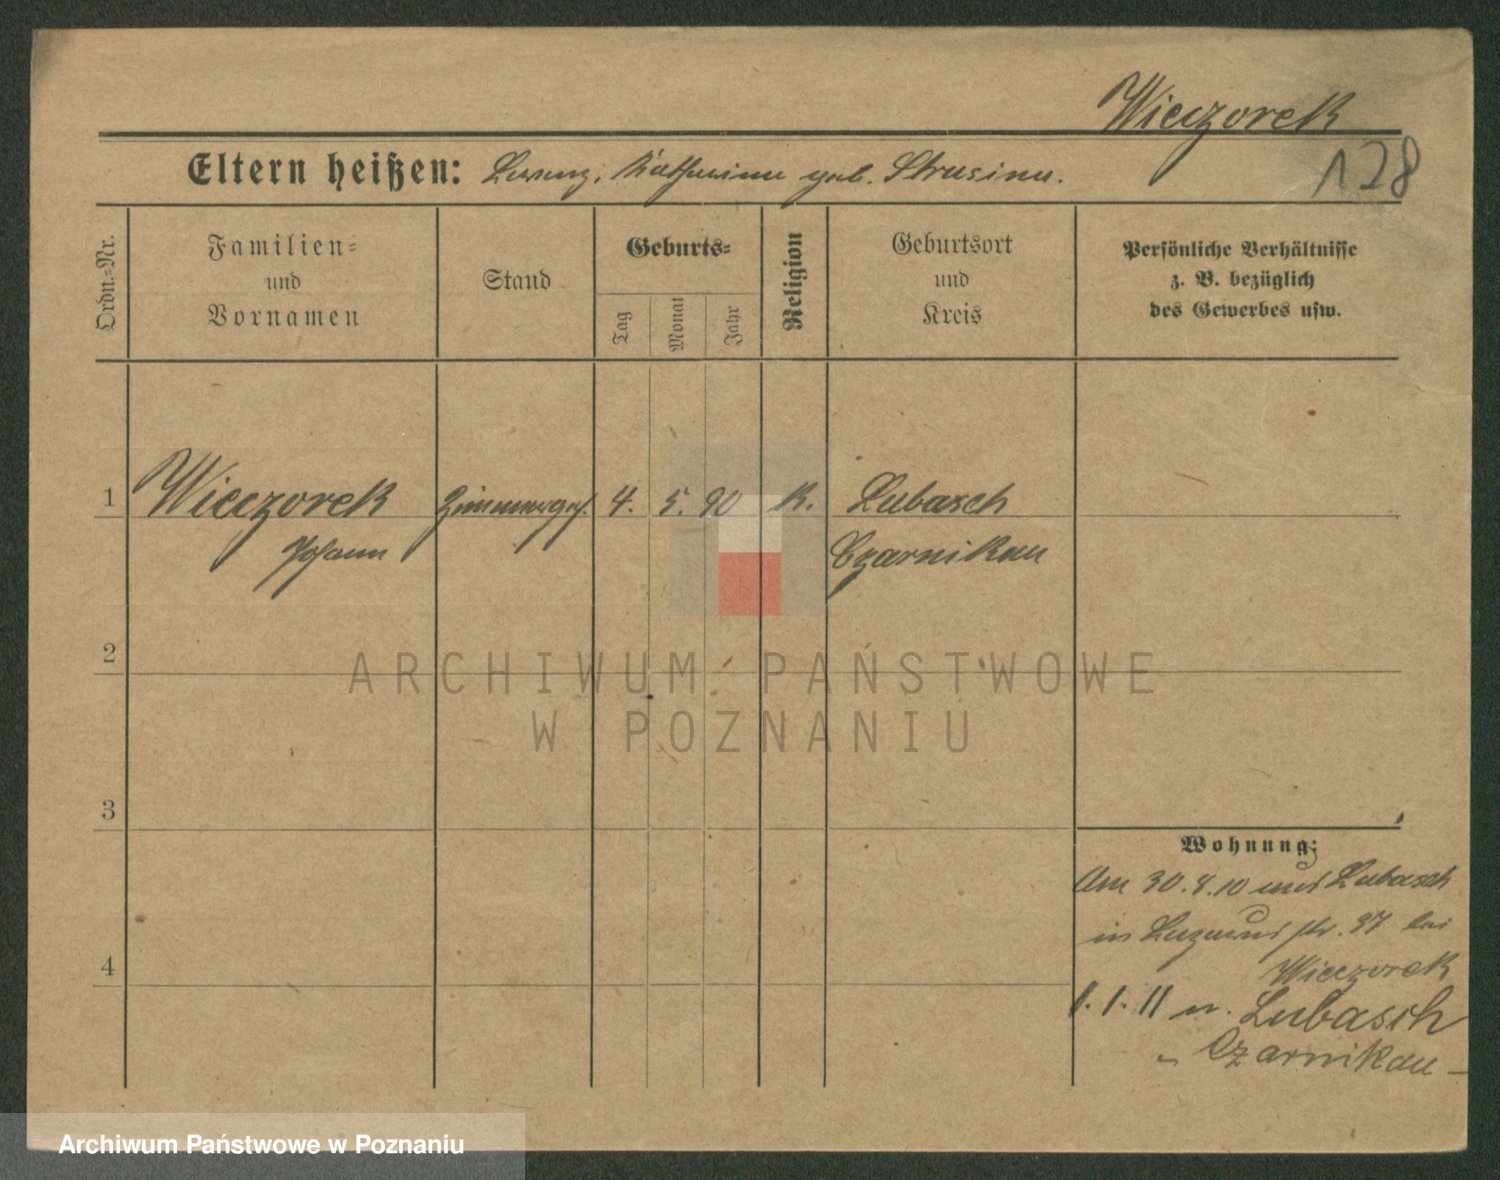 Wieczorek
128
Eltern heißen: Lorenz, Katharina geb. Strusina.
Ordn.-Nr.
Familien-
und
Vornamen
Stand
Geburts-
Tag
Monat
Jahr
Religion
Geburtsort
und
Kreis
Persönliche Verhältnisse
z. B. bezüglich
des Gewerbes usw.
1 Wieczorek Zimmerges. 4. 5. 90 K. Lubasch
Johann Czarnikau
2
3
4
Wohnung:
Am 30.8.10 aus Lubasch
in str. 37 bei
Wieczorek
1.1.11 n. Lubasch
Czarnikau
ARCHIWUM PAŃSTWOWE
W POZNANIU
Archiwum Państwowe w Poznaniu